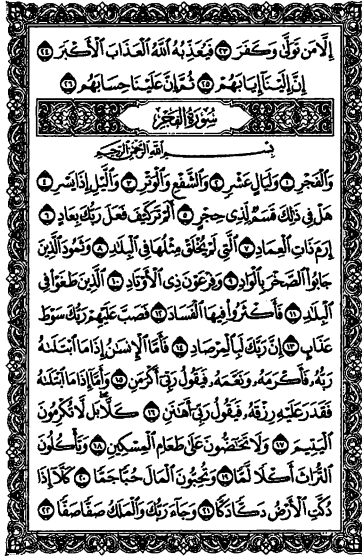 إِلَّا مَن تَوَلَّىٰ وَكَفَرَ ٢٣ فَيُعَذِّبُهُ اللَّهُ الْعَذَابَ الْأَكْبَرَ ٢٤
إِنَّ إِلَيْنَا إِيَابَهُمْ ٢٥ ثُمَّ إِنَّ عَلَيْنَا حِسَابَهُم ٢٦
سُورَةُ الْفَجْرِ
بِسْمِ اللَّهِ الرَّحْمَٰنِ الرَّحِيمِ
وَالْفَجْرِ ١ وَلَيَالٍ عَشْرٍ ٢ وَالشَّفْعِ وَالْوَتْرِ ٣ وَاللَّيْلِ إِذَا يَسْرِ ٤
هَلْ فِي ذَٰلِكَ قَسَمٌ لِّذِي حِجْرٍ ٥ أَلَمْ تَرَ كَيْفَ فَعَلَ رَبُّكَ بِعَادٍ ٦
إِرَمَ ذَاتِ الْعِمَادِ ٧ الَّتِي لَمْ يُخْلَقْ مِثْلُهَا فِي الْبِلَادِ ٨ وَثَمُودَ الَّذِينَ
جَابُوا الصَّخْرَ بِالْوَادِ ٩ وَفِرْعَوْنَ ذِي الْأَوْتَادِ ١٠ الَّذِينَ طَغَوْا فِي
الْبِلَادِ ١١ فَأَكْثَرُوا فِيهَا الْفَسَادَ ١٢ فَصَبَّ عَلَيْهِمْ رَبُّكَ سَوْطَ
عَذَابٍ ١٣ إِنَّ رَبَّكَ لَبِالْمِرْصَادِ ١٤ فَأَمَّا الْإِنسَانُ إِذَا مَا ابْتَلَاهُ
رَبُّهُ فَأَكْرَمَهُ وَنَعَّمَهُ فَيَقُولُ رَبِّي أَكْرَمَنِ ١٥ وَأَمَّا إِذَا مَا ابْتَلَاهُ
فَقَدَرَ عَلَيْهِ رِزْقَهُ فَيَقُولُ رَبِّي أَهَانَنِ ١٦ كَلَّا بَل لَّا تُكْرِمُونَ
الْيَتِيمَ ١٧ وَلَا تَحَاضُّونَ عَلَىٰ طَعَامِ الْمِسْكِينِ ١٨ وَتَأْكُلُونَ
التُّرَاثَ أَكْلًا لَّمًّا ١٩ وَتُحِبُّونَ الْمَالَ حُبًّا جَمًّا ٢٠ كَلَّا إِذَا
دُكَّتِ الْأَرْضُ دَكًّا دَكًّا ٢١ وَجَاءَ رَبُّكَ وَالْمَلَكُ صَفًّا صَفًّا ٢٢